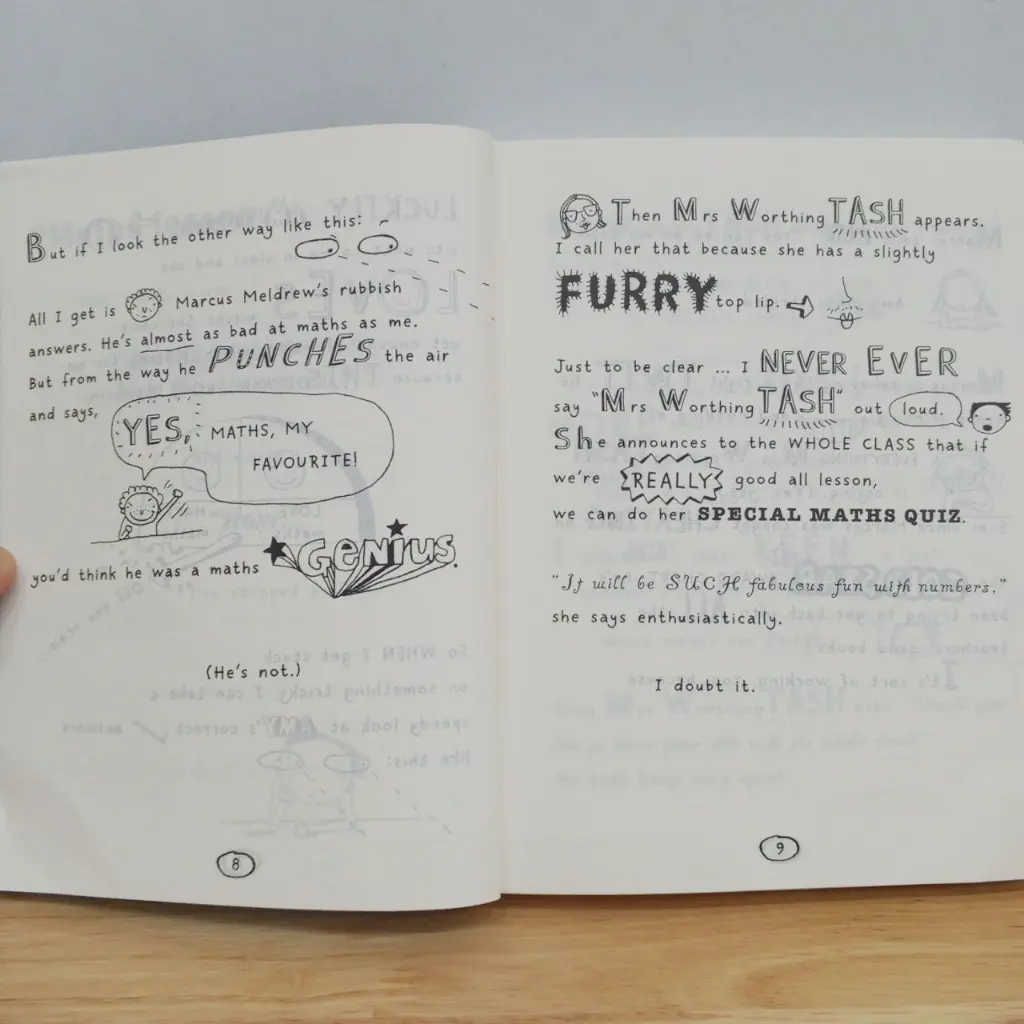 But if I look the other way like this:
All I get is Marcus Meldrew's rubbish
answers. He's almost as bad at maths as me.
But from the way he PUNCHES the air
and says,
YES, MATHS, MY
FAVOURITE!
you'd think he was a maths GENIUS.
(He's not.)
8
Then Mrs WorthingTASH appears.
I call her that because she has a slightly
FURRY top lip.
Just to be clear ... I NEVER EVER
say "Mrs WorthingTASH" out loud.
She announces to the WHOLE CLASS that if
we're REALLY good all lesson,
we can do her SPECIAL MATHS QUIZ.
"It will be SUCH fabulous fun with numbers,"
she says enthusiastically.
I doubt it.
9